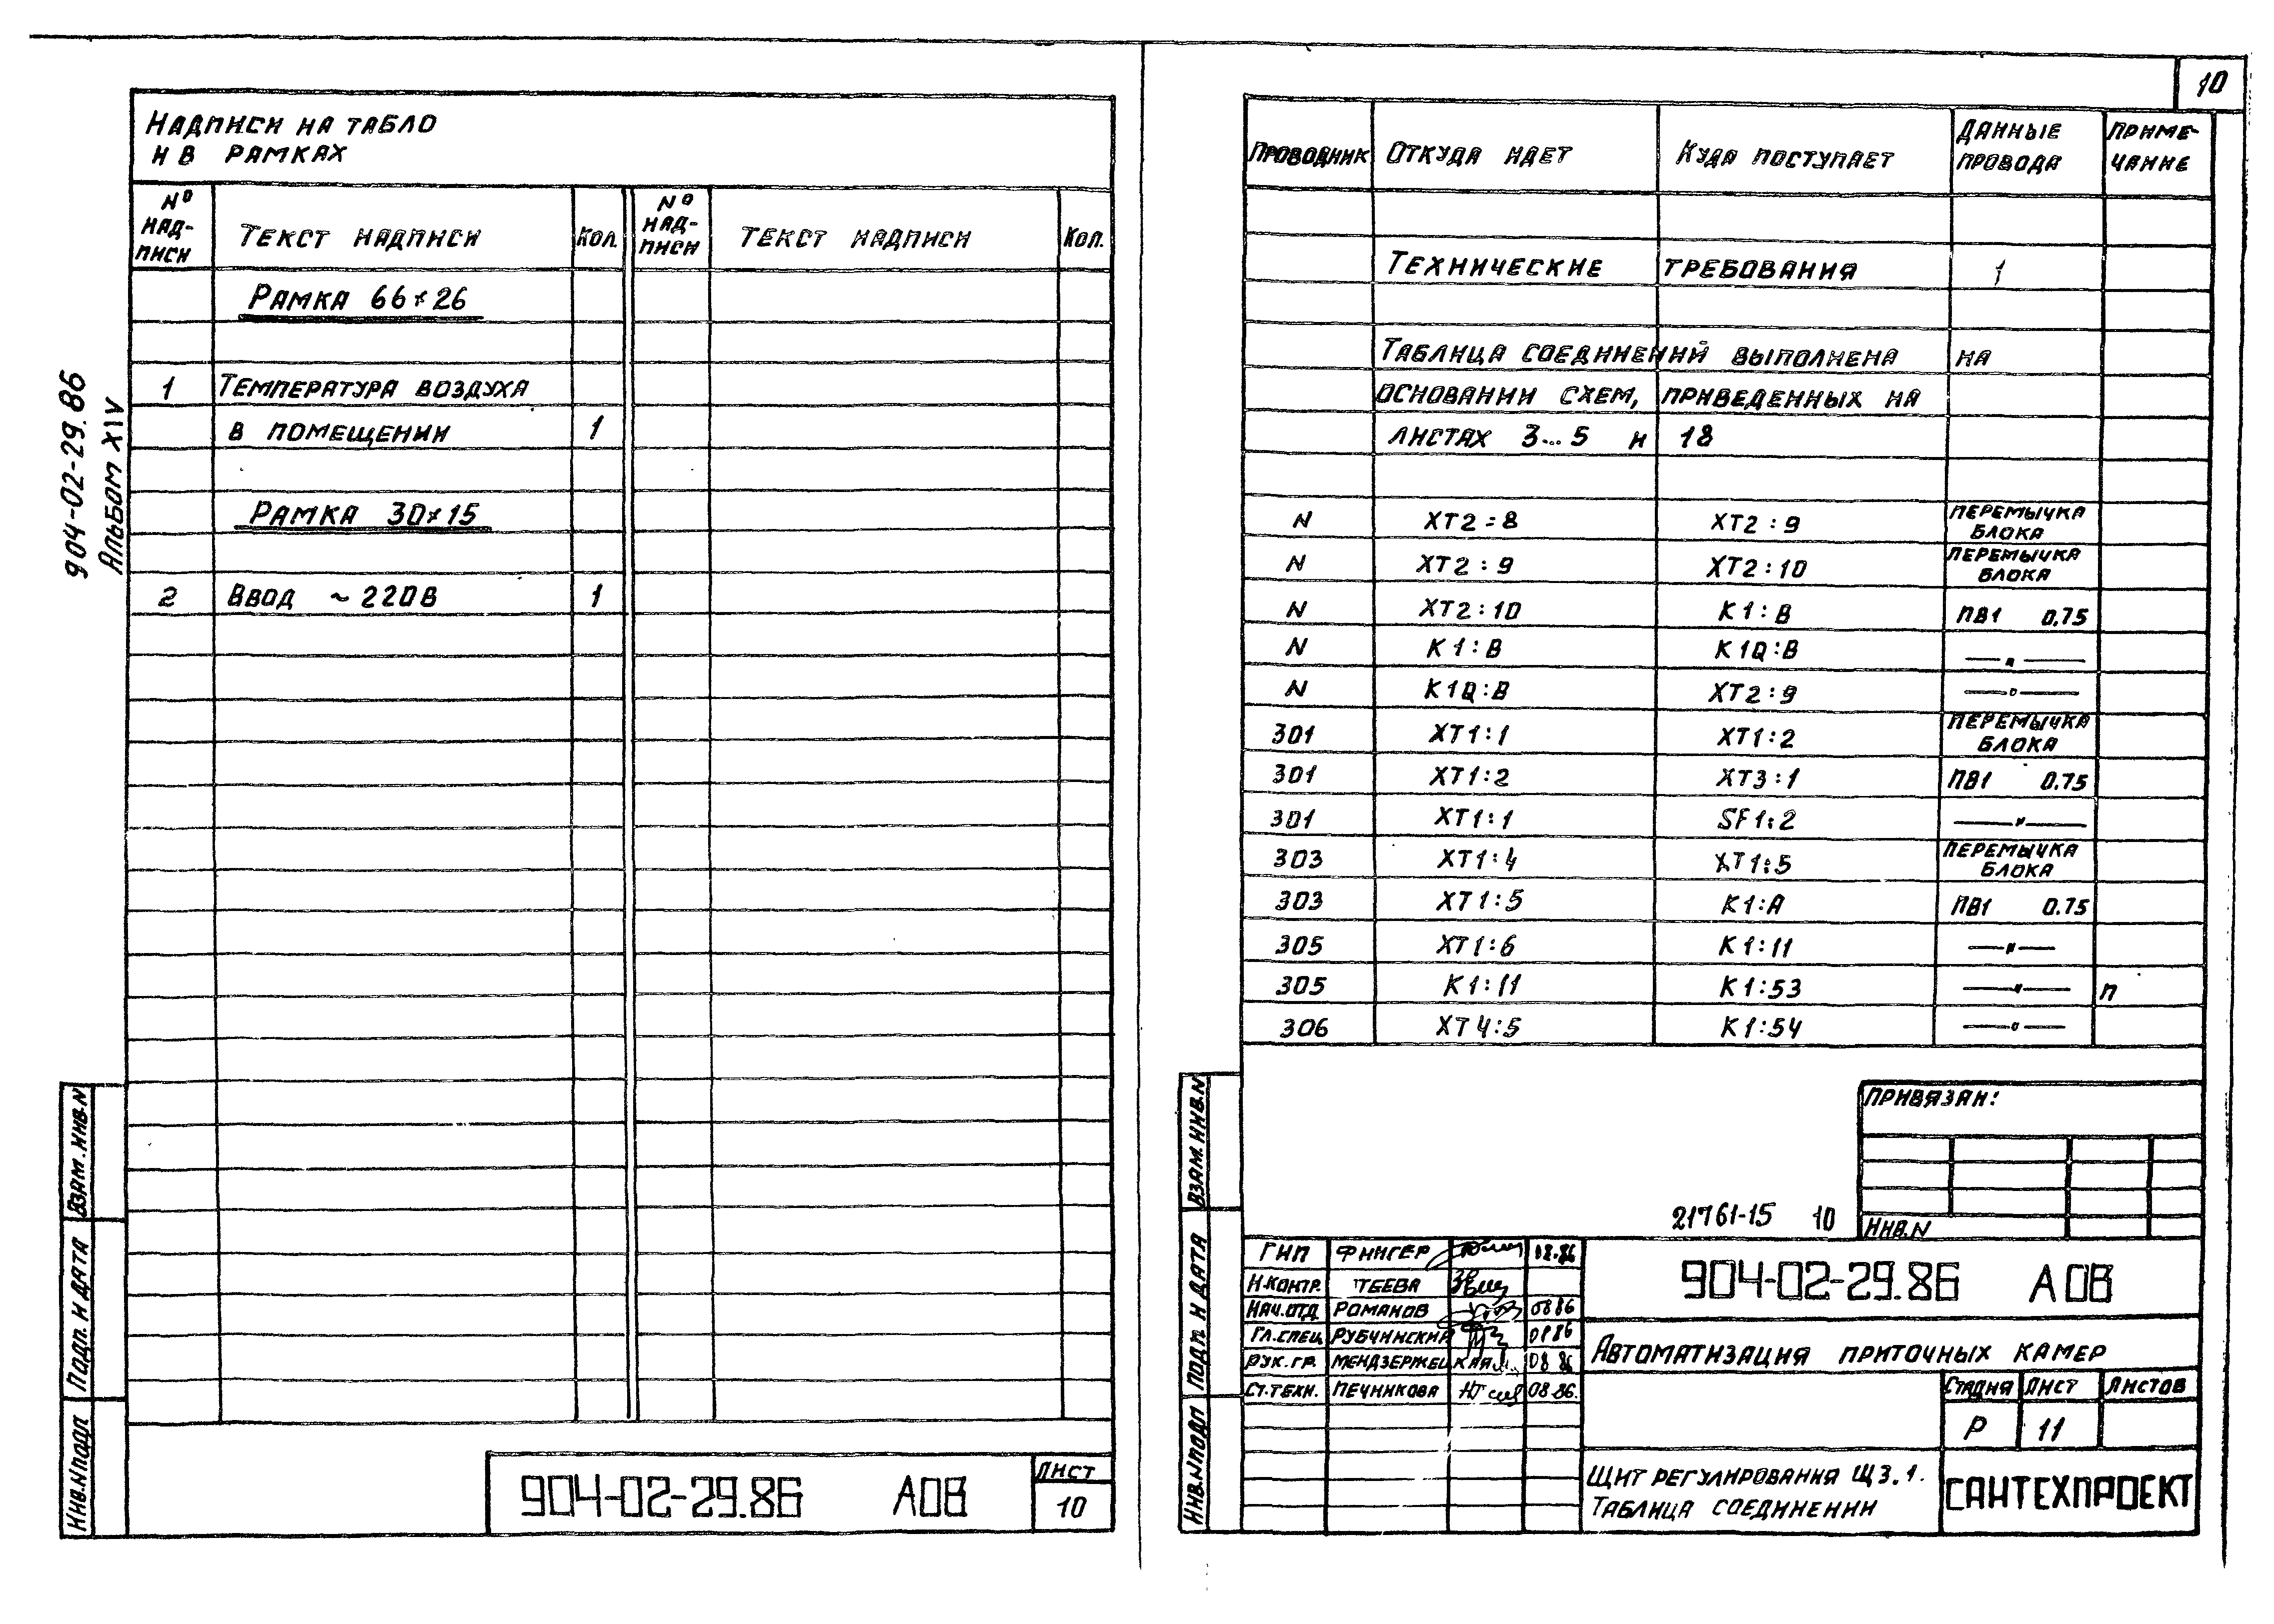 10
904-02-29.86
Альбом XIV
Надписи на табло
и в рамках
№ надписи Текст надписи Кол. № надписи Текст надписи Кол.
Рамка 66×26
1 Температура воздуха
в помещении 1
Рамка 30×15
2 Ввод ~ 220В 1
Взам. инв. N
Подп. и дата
Инв. N подп
904-02-29.86 АОВ
Лист
10
Проводник Откуда идет Куда поступает Данные провода Примечание
Технические требования 1
Таблица соединений выполнена на
основании схем, приведенных на
листах 3...5 и 18
N XT2:8 XT2:9 Перемычка блока
N XT2:9 XT2:10 Перемычка блока
N XT2:10 К1:В ПВ1 0.75
N К1:В К1Q:В —"—
N К1Q:В XT2:9 —"—
301 XT1:1 XT1:2 Перемычка блока
301 XT1:2 XT3:1 ПВ1 0.75
301 XT1:1 SF1:2 —"—
303 XT1:4 XT1:5 Перемычка блока
303 XT1:5 К1:А ПВ1 0.75
305 XT1:6 К1:11 —"—
305 К1:11 К1:53 —"— п
306 XT4:5 К1:54 —"—
Взам. инв. N
Подп. и дата
Инв. N подп
Привязан:
Инв. N
21761-15 10
ГИП Фингер 08.86
Н.контр.
Нач.отд Романов 08 86
Гл.спец Рубчинский 08 86
Рук.гр. Мендзержецкая 08 86
Ст.техн. Печникова 08.86.
904-02-29.86 АОВ
Автоматизация приточных камер
Стадия Лист Листов
Р 11
Щит регулирования Щ3.1.
Таблица соединений
САНТЕХПРОЕКТ